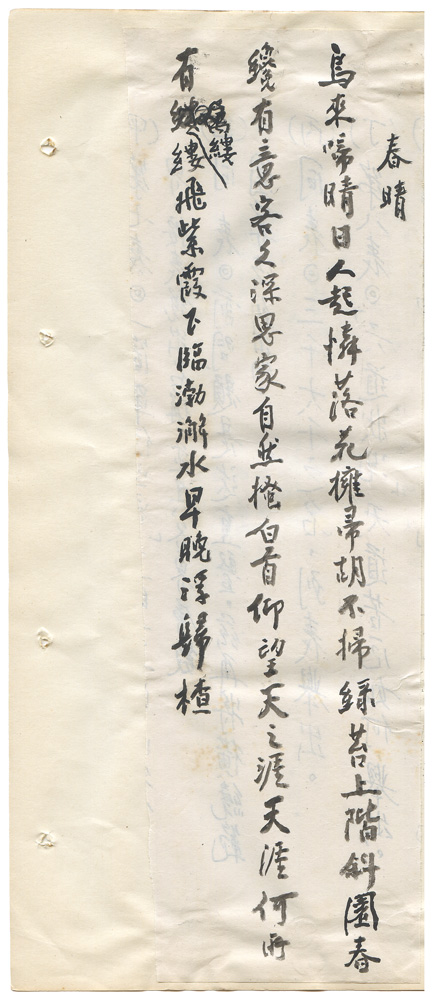 春晴
鳥來啼晴日人起憐落花擁帚胡不掃綠苔上階斜園春
纔有意客久深思家自然搔白首仰望天之涯天涯何所
有縷縷飛紫霞下臨渤澥水早晚浮歸楂